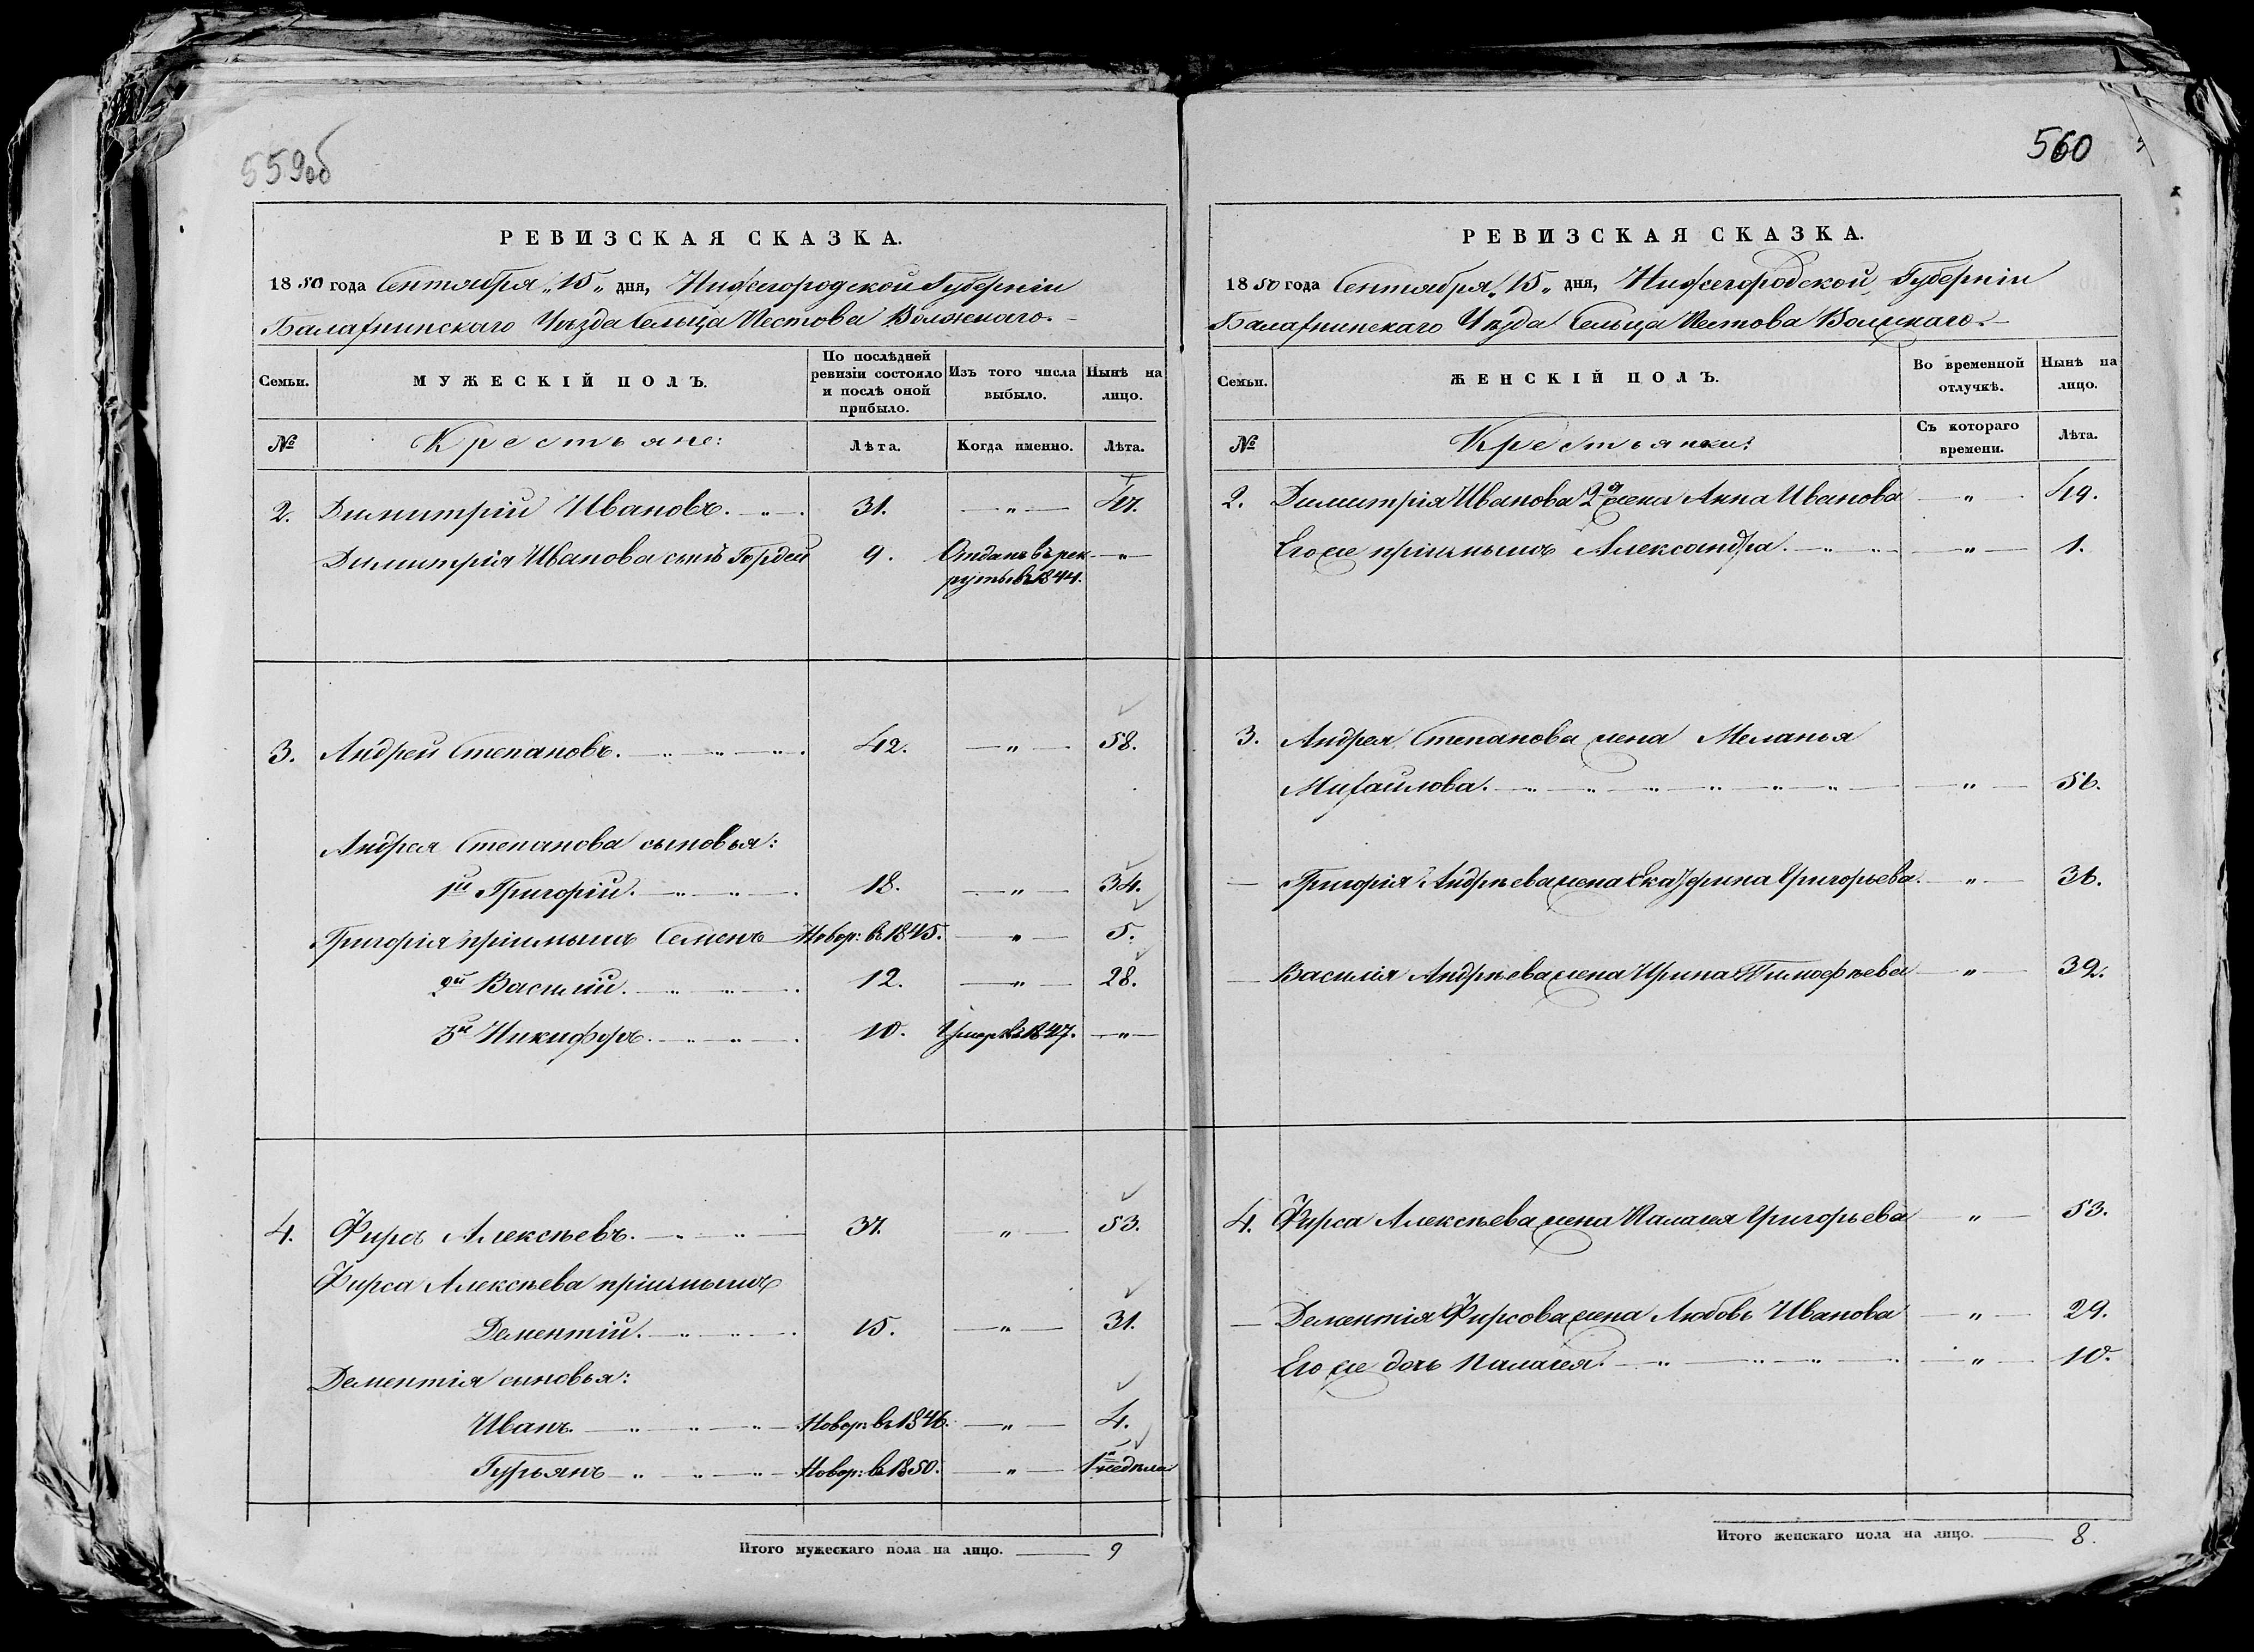 559об
РЕВИЗСКАЯ СКАЗКА.
1850 года Сентября „15„ дня, Нижегородской Губерніи
Балахнинскаго Уѣзда Сельца Пестова Волжскаго.
Семьи. МУЖЕСКІЙ ПОЛЪ. По послѣдней ревизіи состояло и послѣ оной прибыло. Изъ того числа выбыло. Нынѣ на лицо.
№ Крестьяне: Лѣта. Когда именно. Лѣта.
2. Димитрій Ивановъ. 31. „ 47.
Димитрія Иванова сынъ Гордей 9. Отданъ въ рек- „
руты въ 1844.
3. Андрей Степановъ. 42. „ 58.
Андрея Степанова сыновья:
1й Григорій. 18. „ 34.
Григорія пріимышъ Семенъ Новор: въ 1845. „ 5.
2й Василій. 12. „ 28.
3й Никифоръ. 10. Умеръ въ 1847. „
4. Фирсъ Алексѣевъ. 37. „ 53.
Фирса Алексѣева пріимышъ
Дементій. 15. „ 31.
Дементія сыновья:
Иванъ. Новор: въ 1846. „ 4.
Гурьянъ Новор: въ 1850. „ 1 недѣля
Итого мужескаго пола на лицо. 9
560
РЕВИЗСКАЯ СКАЗКА.
1850 года Сентября „15„ дня, Нижегородской Губерніи
Балахнинскаго Уѣзда Сельца Пестова Волжскаго.
Семьи. ЖЕНСКІЙ ПОЛЪ. Во временной отлучкѣ. Нынѣ на лицо.
№ Крестьянки: Съ котораго времени. Лѣта.
2. Димитрія Иванова 2я жена Анна Иванова „ 49.
Его же пріимышъ Александра. „ 1.
3. Андрея Степанова жена Меланья
Михайлова. „ 56.
Григорія Андрѣева жена Екатерина Григорьева. „ 36.
Василія Андрѣева жена Ирина Тимофѣева „ 32.
4. Фирса Алексѣева жена Палагея Григорьева „ 53.
Дементія Фирсова жена Любовь Иванова „ 29.
Его же дочь Палагея. „ 10.
Итого женскаго пола на лицо. 8.